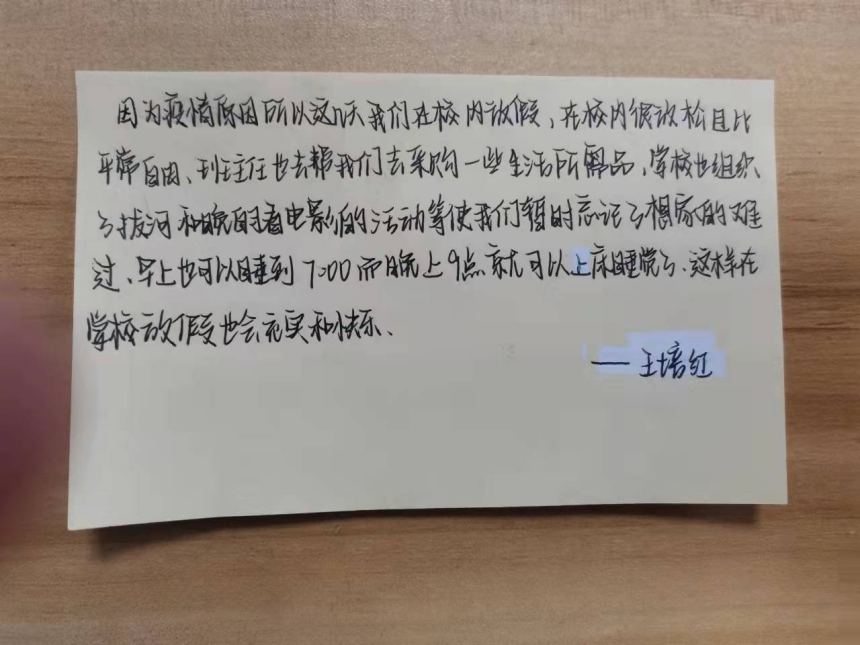 因为疫情原因所以这次我们在校内放假，在校内很放松且比
平常自由、班主任也去帮我们去采购一些生活所需品，学校也组织
了拔河和晚时看电影的活动等使我们暂时忘记了想家的难
过、早上也可以睡到7:00而晚上9点就可以上床睡觉了、这样在
学校放假也会充实和快乐、
——王培红